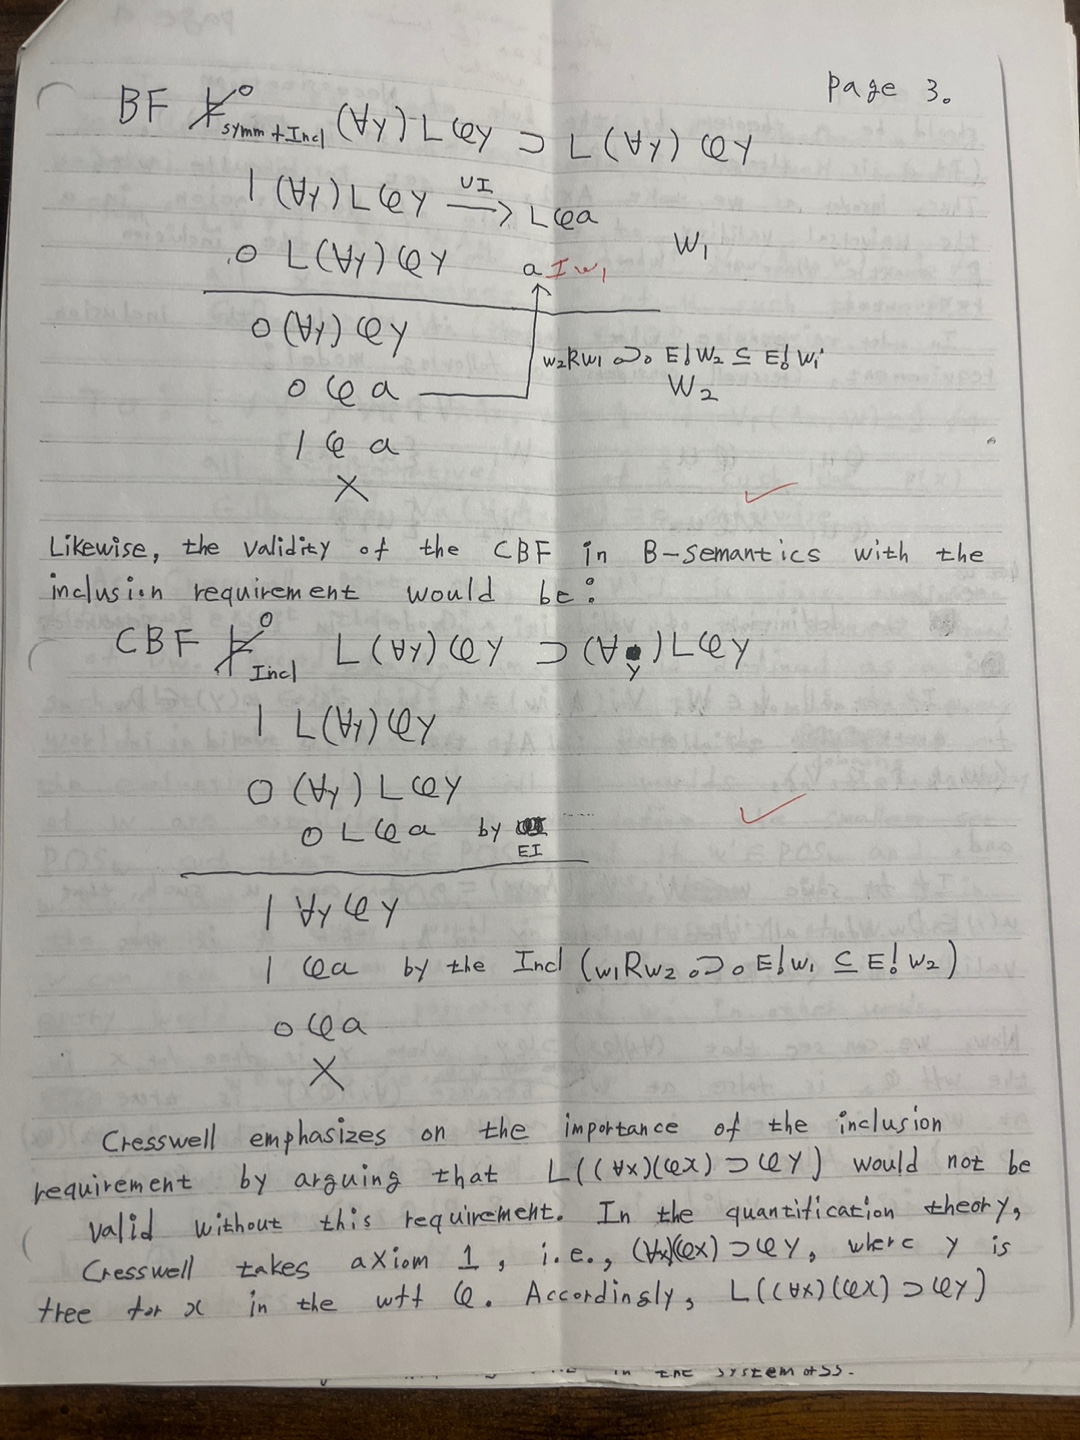 page 3.
BF ⊬⁰ symm+Incl (∀y)Lφy ⊃ L(∀y)φy
1 (∀y)Lφy UI → Lφa
0 L(∀y)φy a I w₁ W₁
0 (∀y)φy
w₂Rw₁ .⊃. E!w₂ ⊆ E!w₁
0 φa W₂
1 φa
×
Likewise, the validity of the CBF in B-semantics with the
inclusion requirement would be:
CBF ⊬⁰ Incl L(∀y)φy ⊃ (∀y)Lφy
1 L(∀y)φy
0 (∀y)Lφy
0 Lφa by EI
1 ∀yφy
1 φa by the Incl (w₁Rw₂ .⊃. E!w₁ ⊆ E!w₂)
0 φa
×
Cresswell emphasizes on the importance of the inclusion
requirement by arguing that L((∀x)(φx) ⊃ φy) would not be
valid without this requirement. In the quantification theory,
Cresswell takes axiom 1, i.e., (∀x)(φx) ⊃ φy, where y is
free for x in the wff φ. Accordingly, L((∀x)(φx) ⊃ φy)
in the system of S5.